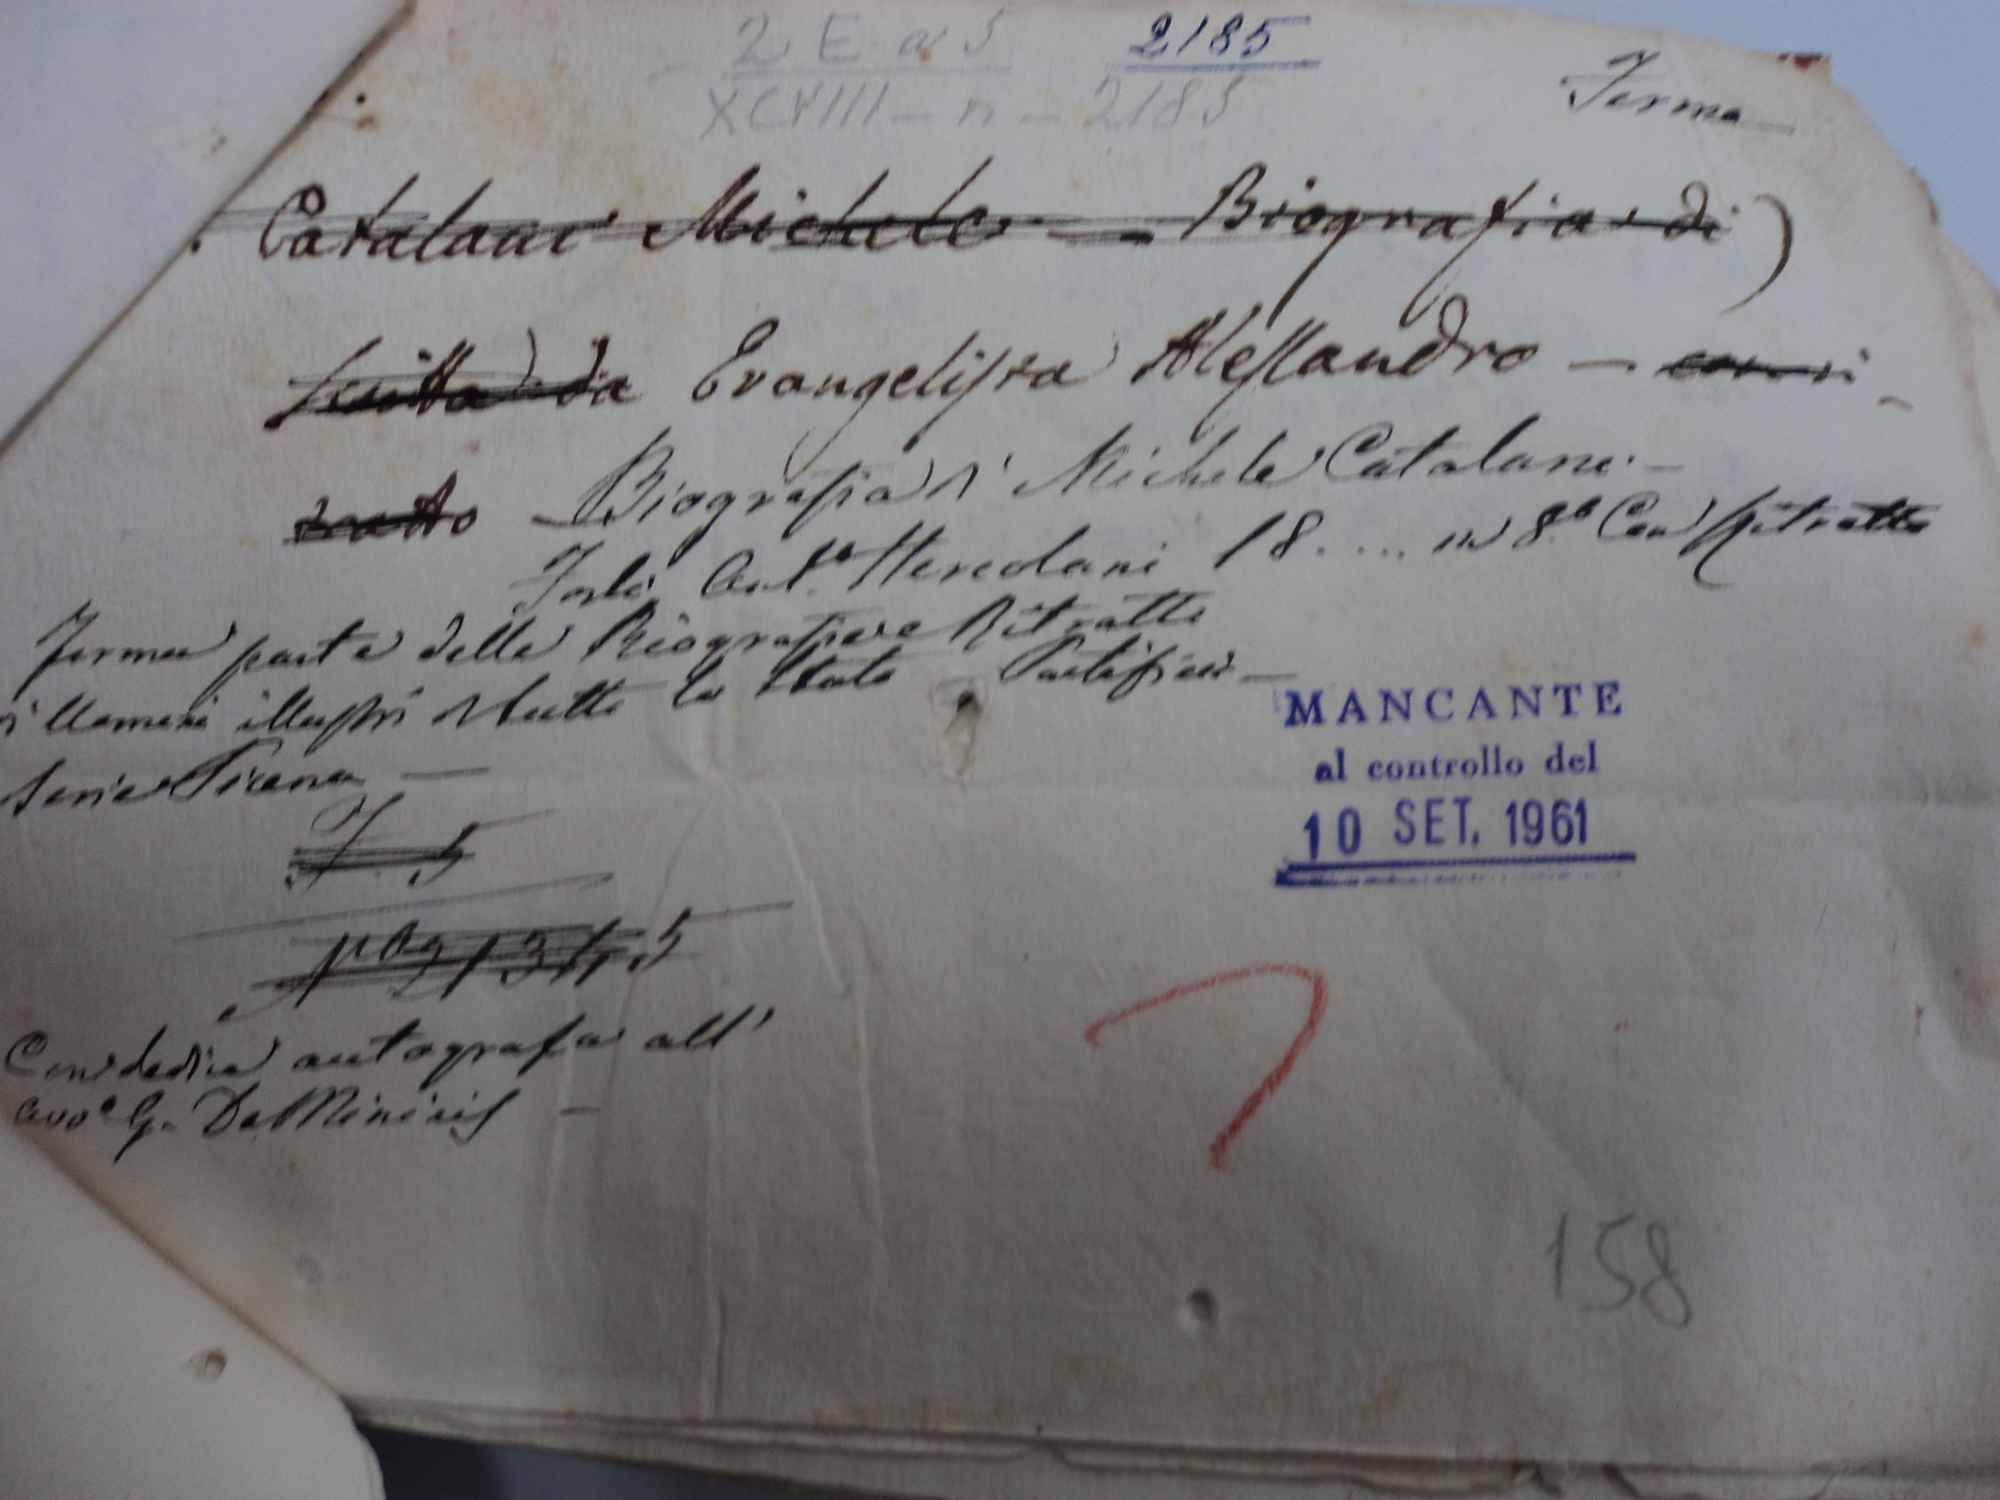 2 E a 5 2185
XCVIII - n - 2185
Fermo
Catalani Michele - Biografia di)
scritta da Evangelista Alessandro - con ri-
tratto - Biografia di Michele Catalani -
Forlì Ant.º Hercolani 18.... in 8.º Con Ritratto
Forma parte delle Biografie e Ritratti
di Uomini illustri di tutto lo Stato Pontificio -
Serie Picena -
MANCANTE
al controllo del
10 SET. 1961
Con dedica autografa all'
Avv.º G. De Minicis -
158